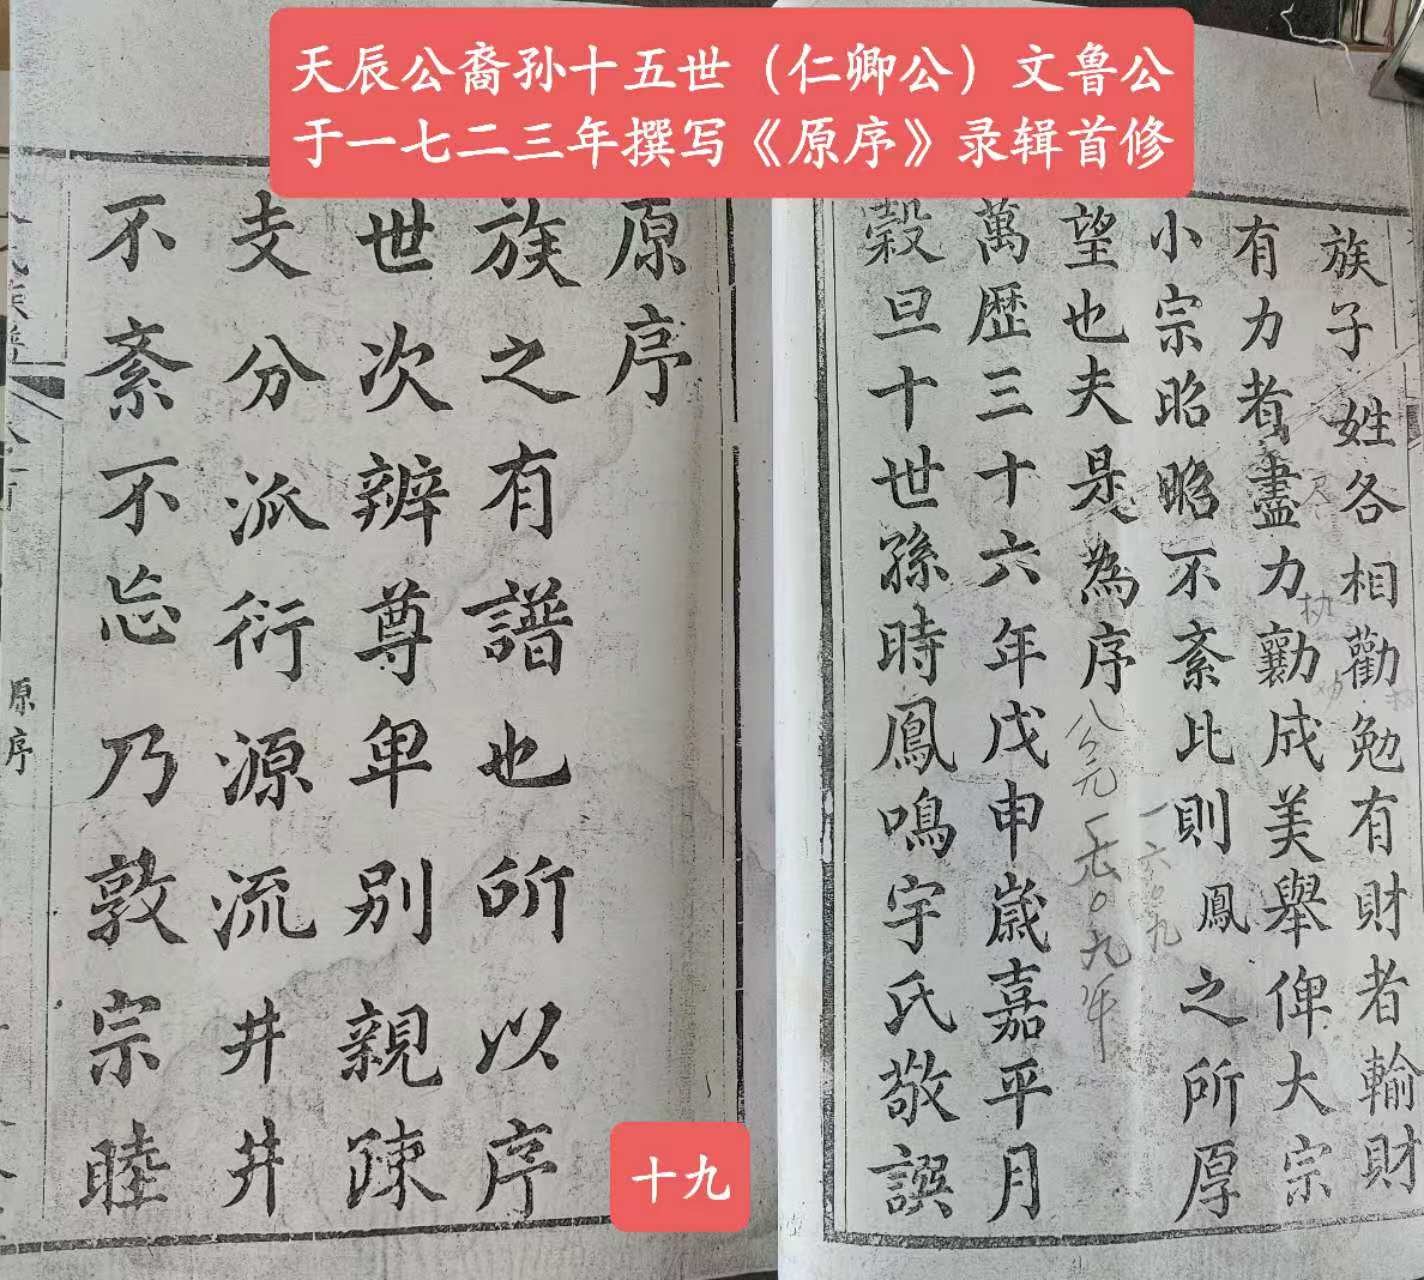 天辰公裔孙十五世（仁卿公）文鲁公
于一七二三年撰写《原序》录辑首修
族子姓各相勸勉有財者輸財
有力者盡力勷成美舉俾大宗
小宗昭昭不紊比則鳳之所厚
望也夫是為序
公元一六〇九年
一六〇九
萬歴三十六年戊申歲嘉平月
穀旦十世孫時鳳鳴宇氏敬譔
原序
族之有譜也所以序
世次辨尊卑別親疎
支分派衍源流井井
不紊不忘乃敦宗睦
原序
十九